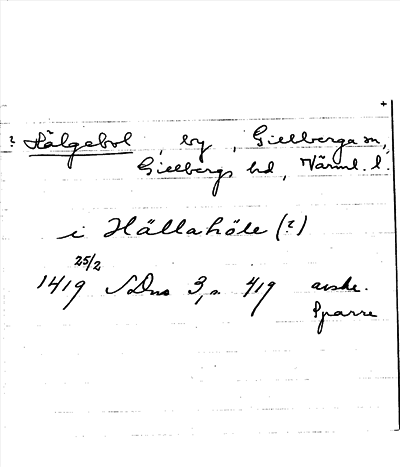 ? Hälgebol, by, Gillberga sn,
Gillbergs hd, Värml. l.
i Hällahöle (?)
25/2
1419 SDns 3, s. 419 avskr.
Sparre